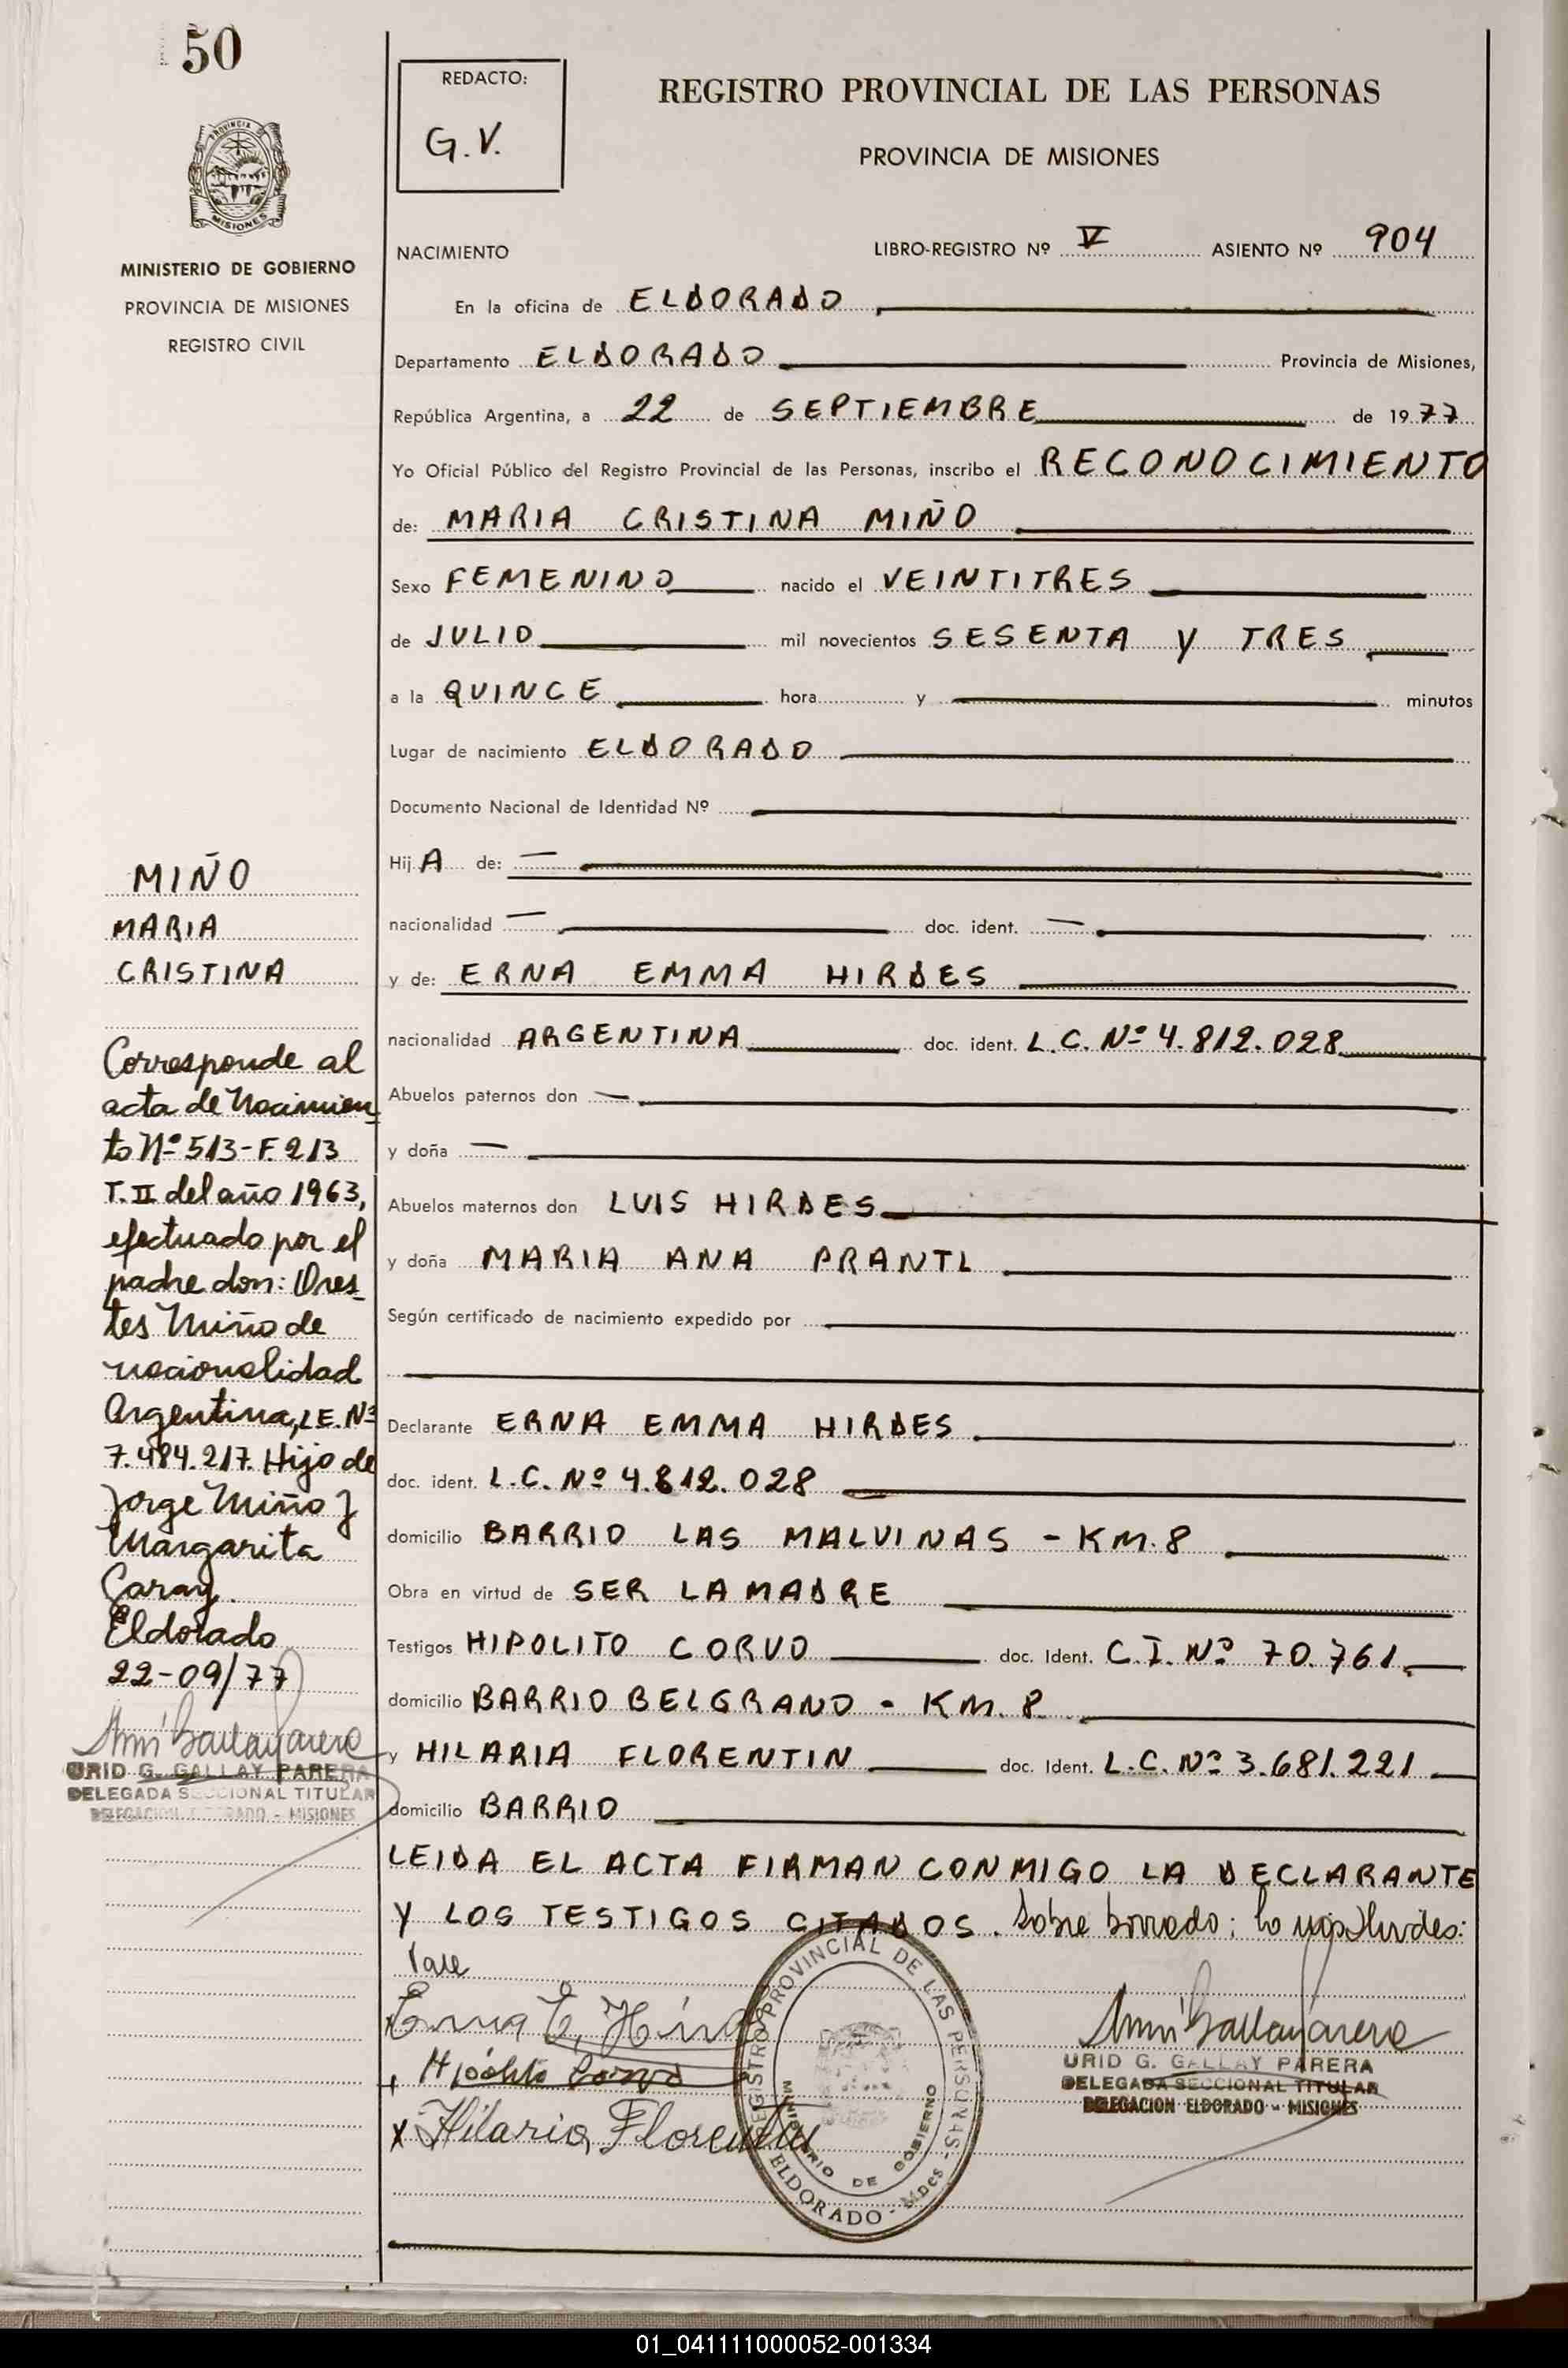 50
REDACTO:
G.V.
REGISTRO PROVINCIAL DE LAS PERSONAS
PROVINCIA DE MISIONES
PROVINCIA
MISIONES
MINISTERIO DE GOBIERNO
PROVINCIA DE MISIONES
REGISTRO CIVIL
NACIMIENTO LIBRO-REGISTRO Nº V ASIENTO Nº 904
En la oficina de ELDORADO
Departamento ELDORADO Provincia de Misiones,
República Argentina, a 22 de SEPTIEMBRE de 1977
Yo Oficial Público del Registro Provincial de las Personas, inscribo el RECONOCIMIENTO
de: MARIA CRISTINA MIÑO
Sexo FEMENINO nacido el VEINTITRES
de JULIO mil novecientos SESENTA Y TRES
a la QUINCE hora y minutos
Lugar de nacimiento ELDORADO
Documento Nacional de Identidad Nº
Hij A de: —
nacionalidad — doc. ident. —
y de: ERNA EMMA HIRDES
nacionalidad ARGENTINA doc. ident. L.C. Nº 4.812.028
Abuelos paternos don —
y doña —
Abuelos maternos don LUIS HIRDES
y doña MARIA ANA PRANTL
Según certificado de nacimiento expedido por
Declarante ERNA EMMA HIRDES
doc. ident. L.C. Nº 4.812.028
domicilio BARRIO LAS MALVINAS - KM. 8
Obra en virtud de SER LA MADRE
Testigos HIPOLITO CORVO doc. Ident. C.I. Nº 70.761
domicilio BARRIO BELGRANO - KM. 8
y HILARIA FLORENTIN doc. Ident. L.C. Nº 3.681.221
domicilio BARRIO
LEIDA EL ACTA FIRMAN CONMIGO LA DECLARANTE
Y LOS TESTIGOS CITADOS. Sobre borrado:
Vale
Erna E. Hirdes
Hipólito Corvo
x Hilaria Florentin
REGISTRO PROVINCIAL DE LAS PERSONAS -
MINISTERIO DE GOBIERNO
ELDORADO - Mnes
URID G. GALLAY PARERA
DELEGADA SECCIONAL TITULAR
DELEGACION ELDORADO - MISIONES
MIÑO
MARIA
CRISTINA
Corresponde al
acta de Nacimien
to Nº 513-F. 213
T. II del año 1963,
efectuado por el
padre don: Ores
tes Miño de
nacionalidad
Argentina, L.E. Nº
7.484.217. Hijo de
Jorge Miño y
Margarita
Garay.
Eldorado
22-09/77
URID G. GALLAY PARERA
DELEGADA SECCIONAL TITULAR
DELEGACION ELDORADO - MISIONES
01_041111000052-001334